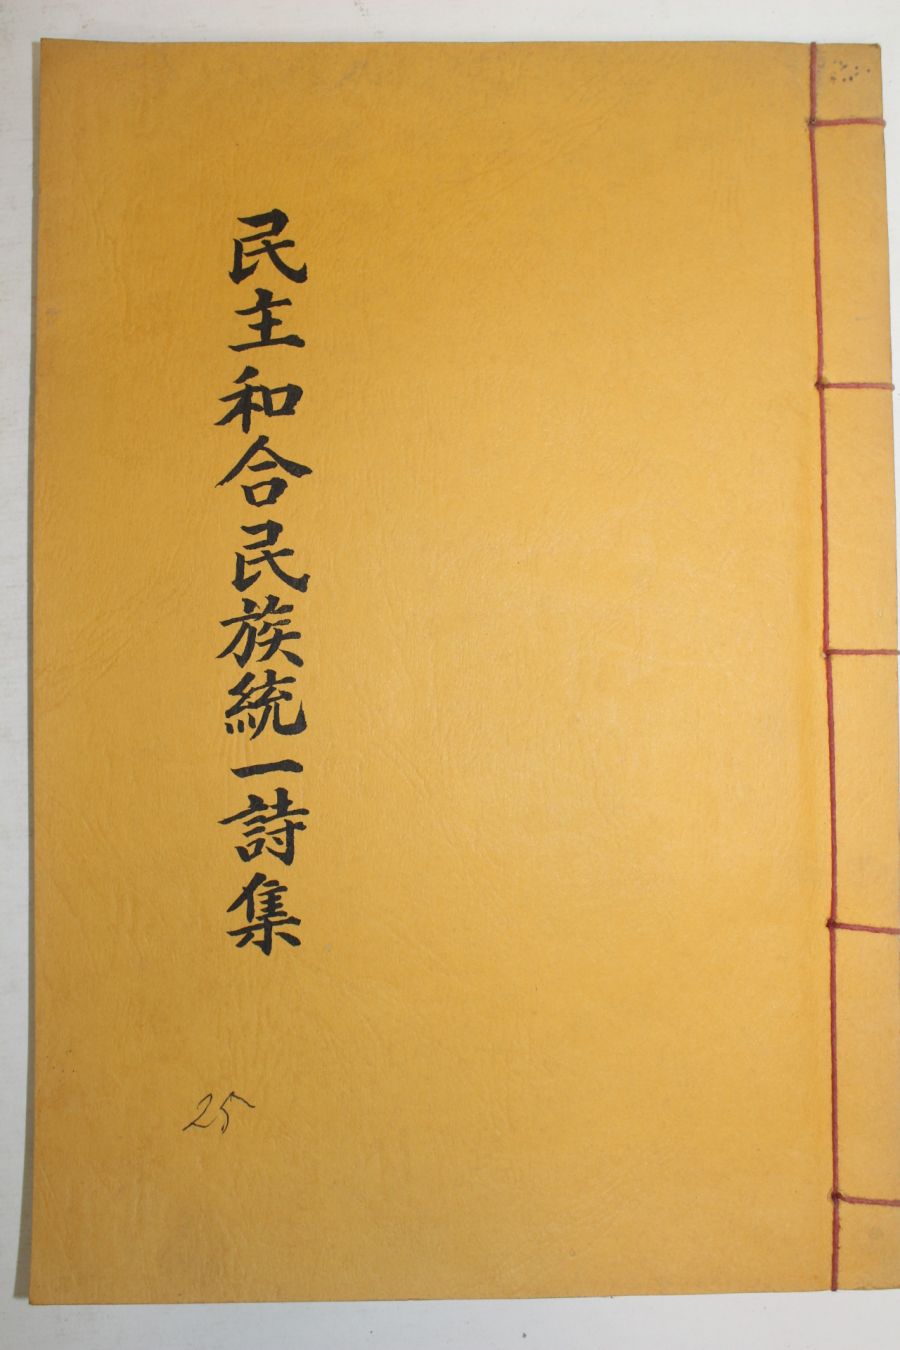 民主和合民族統一詩集
25